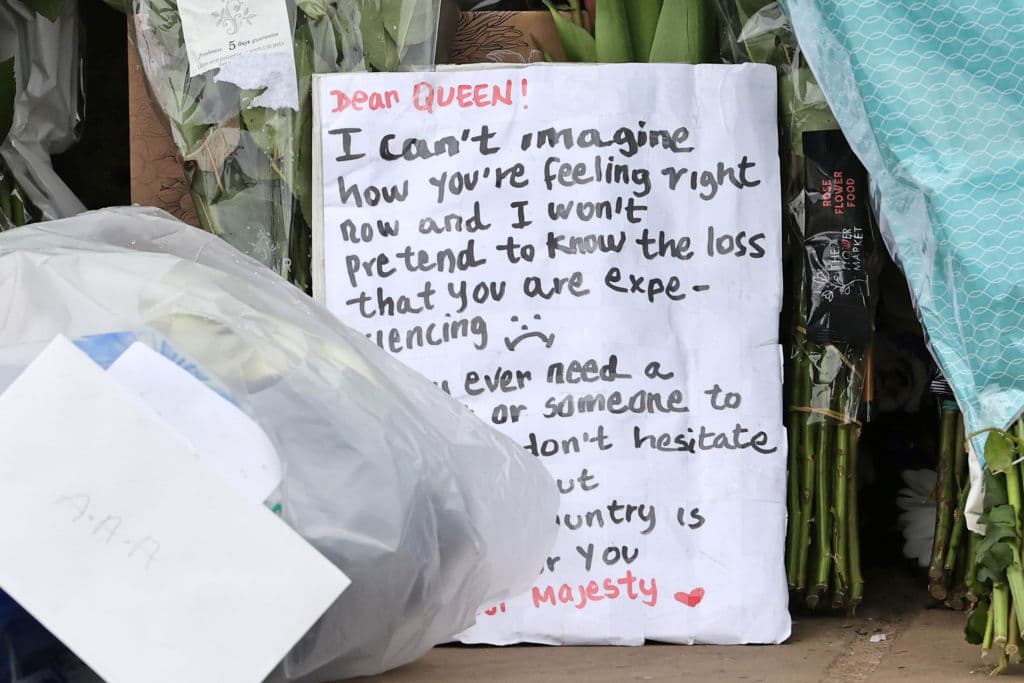 freshness 5 days guarantee
Dear QUEEN!
I can't imagine
how you're feeling right
now and I won't
pretend to know the loss
that you are expe-
riencing
ever need a
or someone to
don't hesitate
country is
you
Majesty
A.A.A
ROSE
FLOWER
FOOD
THE
FLOWER
MARKET